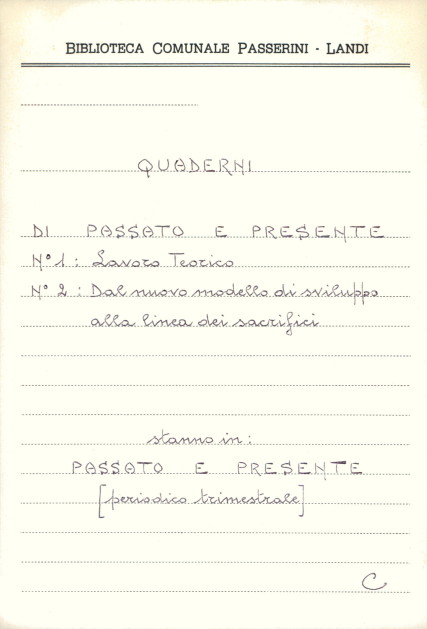 BIBLIOTECA COMUNALE PASSERINI - LANDI
QUADERNI
DI PASSATO E PRESENTE
N° 1 : Lavoro Teorico
N° 2 : Dal nuovo modello di sviluppo
alla linea dei sacrifici
stanno in :
PASSATO E PRESENTE
[periodico trimestrale]
C